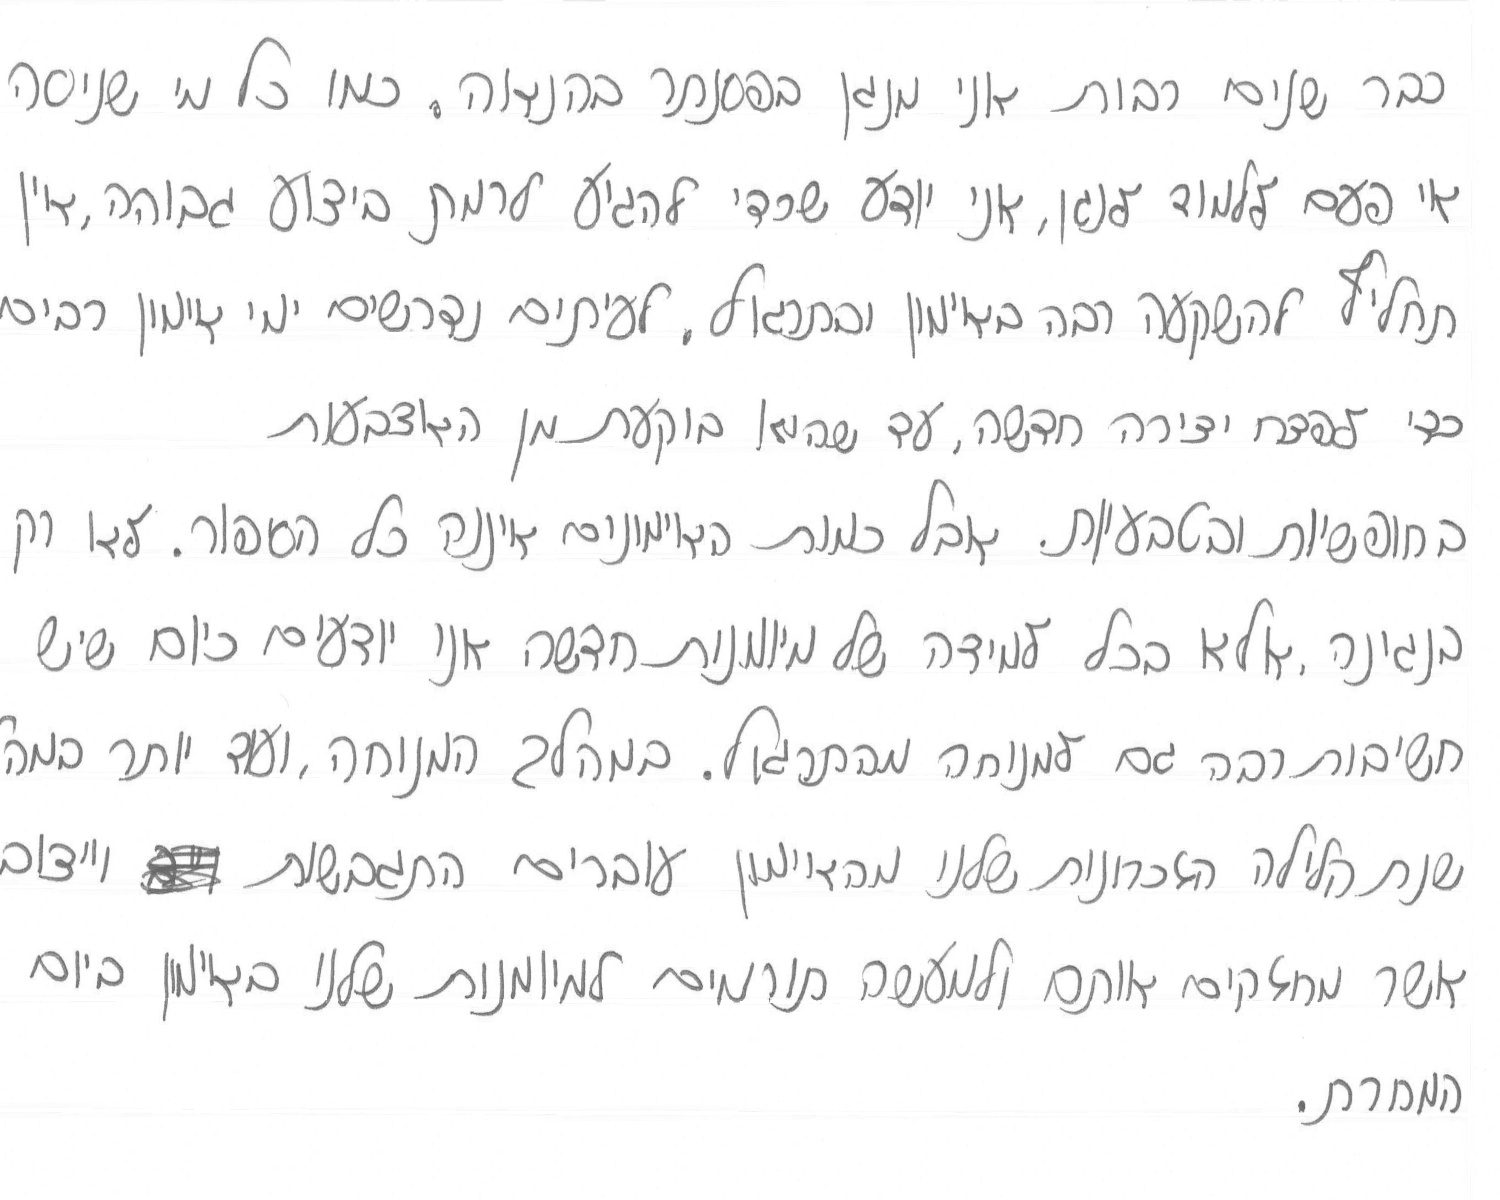 כבר שנים רבות אני מנגן בפסנתר בהנאה. כמו כל מי שניסה
אי פעם ללמוד לנגן, אני יודע שכדי להגיע לרמת ביצוע גבוהה, אין
תחליף להשקעה רבה באימון ובתרגול. לעיתים נדרשים ימי אימון רבים
כדי לפצח יצירה חדשה, עד שהיא בוקעת מן האצבעות
בחופשיות ובטבעיות. אבל כמות האימונים איננה כל הסיפור. לא רק
בנגינה, אלא בכל למידה של מיומנות חדשה אנו יודעים כיום שיש
חשיבות רבה גם למנוחה מהתרגול. במהלך המנוחה, ועוד יותר במהלך
שנת הלילה הזכרונות שלנו מהאימון עוברים התגבשות וייצוב
אשר מחזקים אותם ולמעשה תורמים למיומנות שלנו באימון ביום
המחרת.